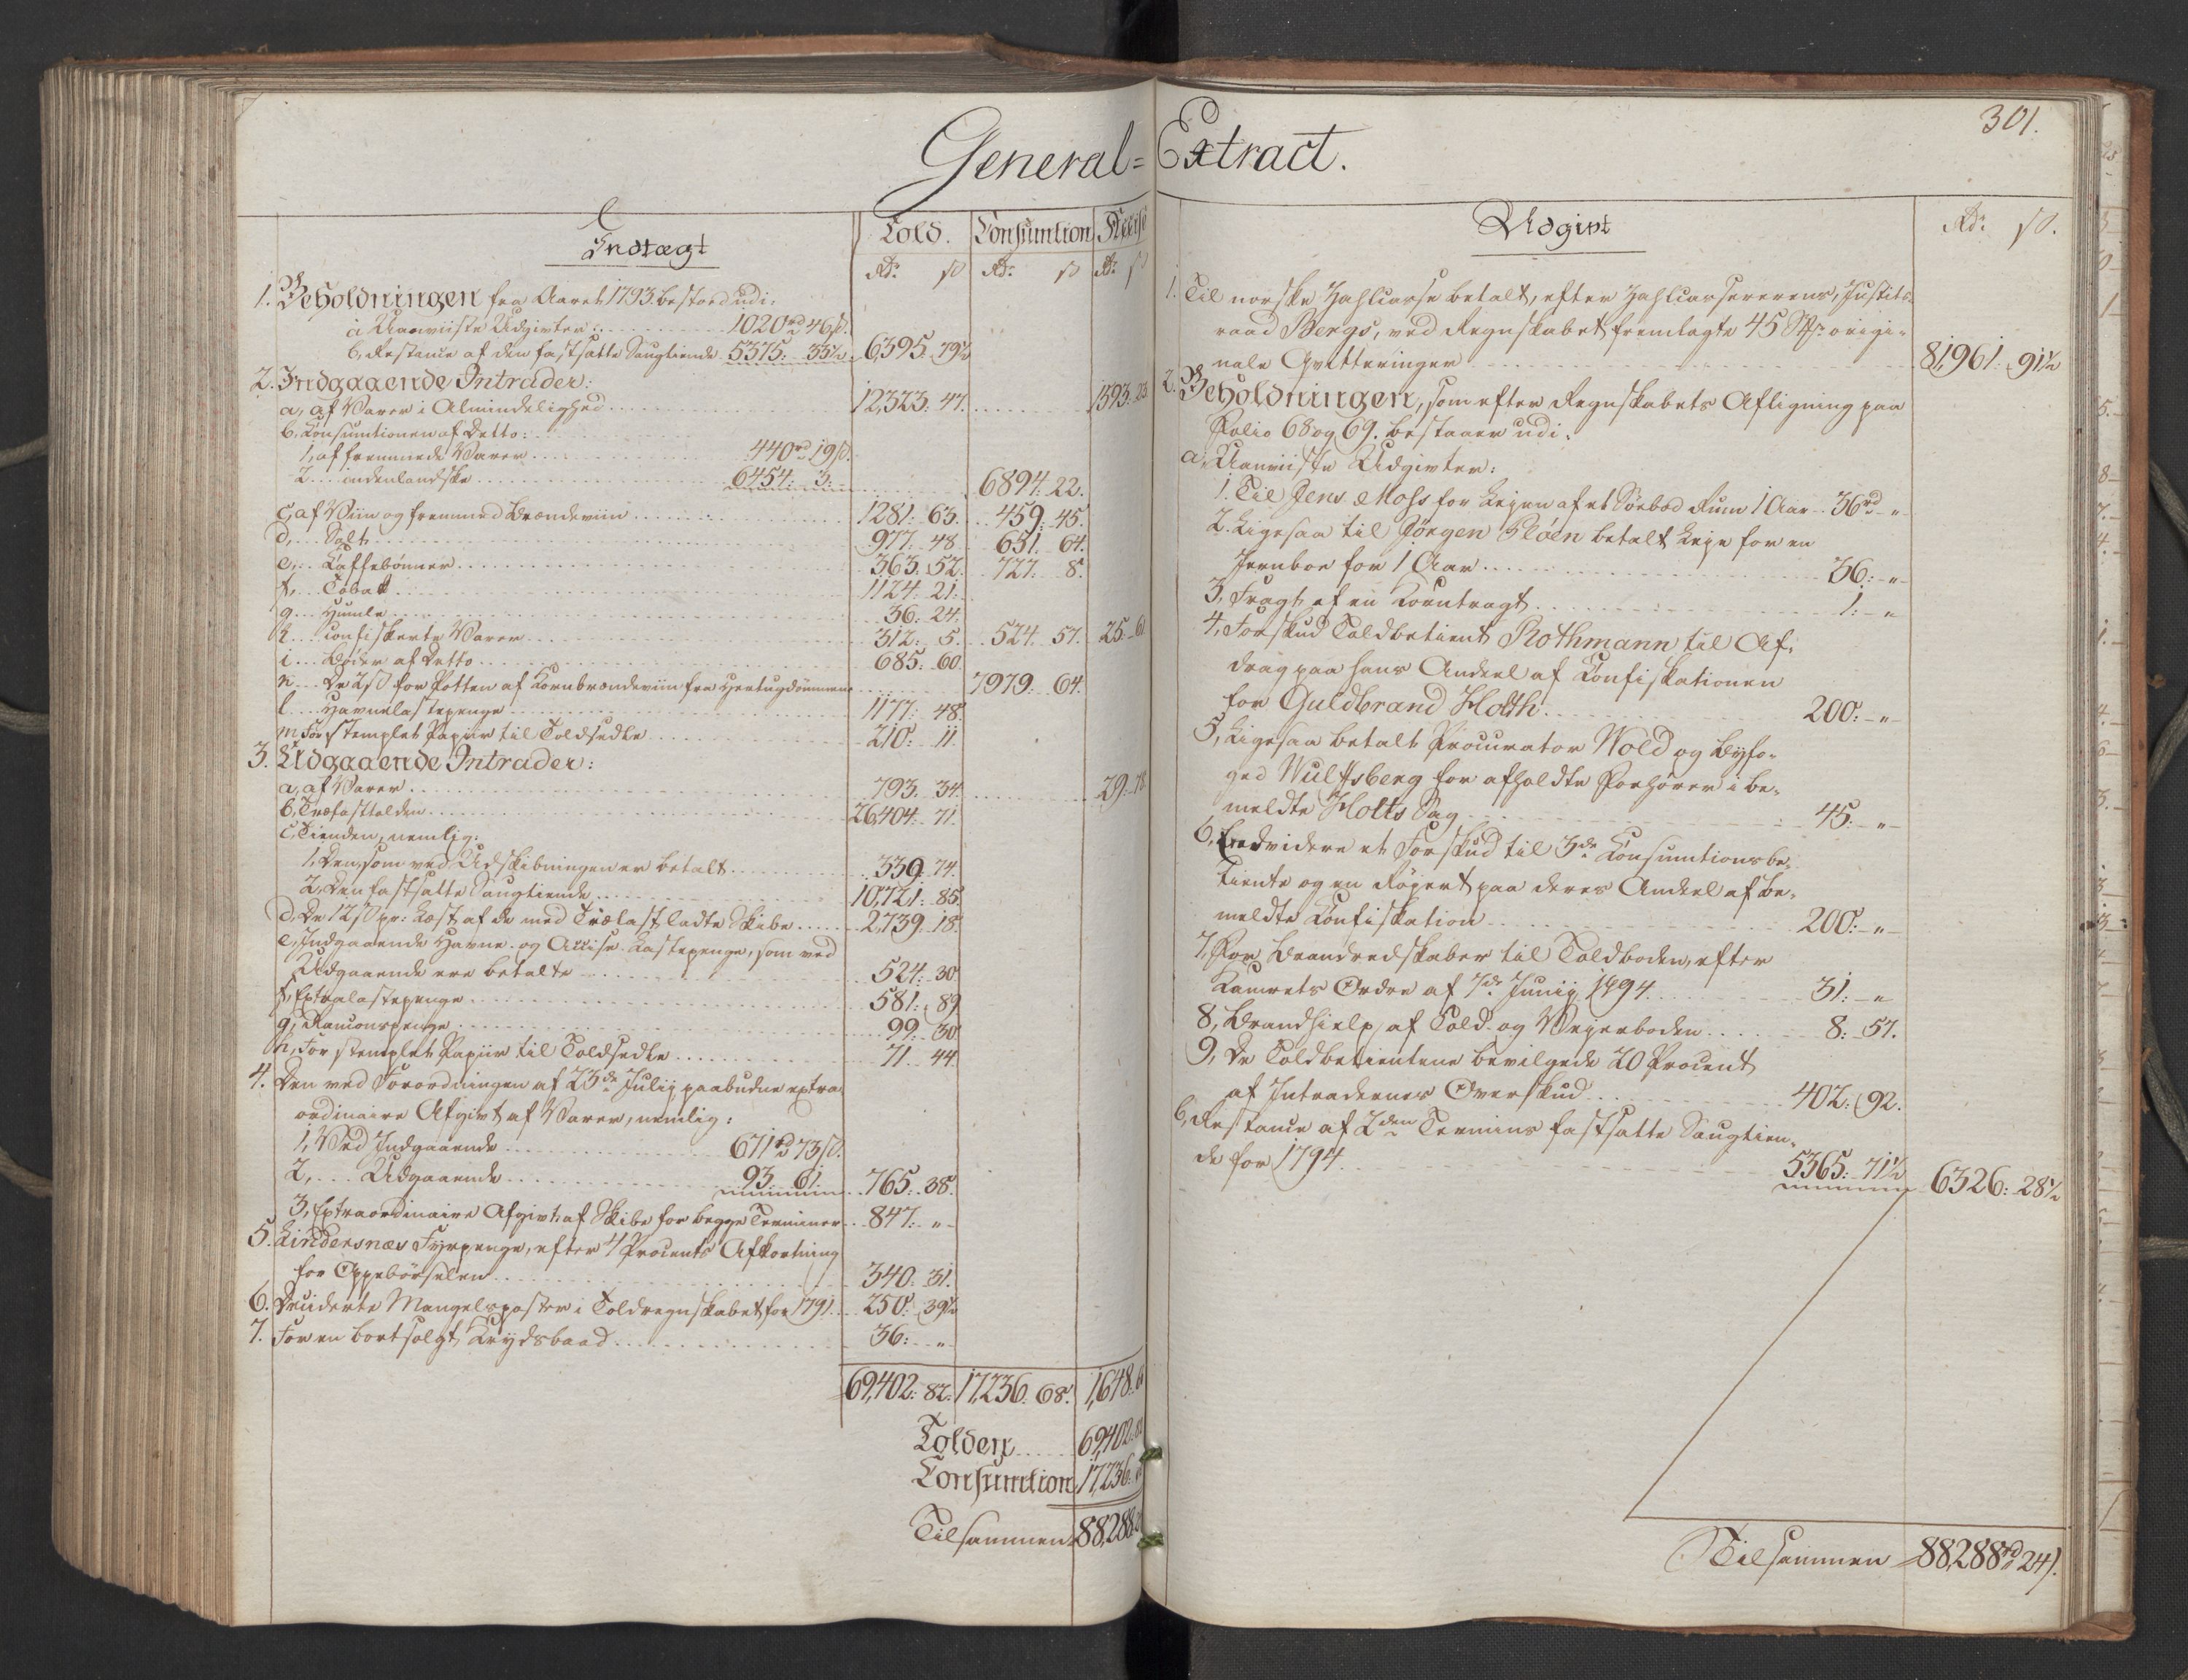 General=Extract.
301.
Indtægt
Told. Consumtion Accise
Rdr ß Rdr ß Rdr ß
1. Beholdningen fra Aaret 1793. bestoed udi:
a, Uanviiste Udgivter: 1020rd 46ß.
b, Restance af den fastsatte Saugtiende 5375: 33½ 6,395. 79½
2. Indgaaende Intrader:
a, af Varer i Almindelighed 12,323: 47. 1593: 23
b, Consumtionen af Ditto:
1, af fremmede Varer 440rd 19ß.
2 indenlandske 6454: 3: 6894: 22.
c, af Viin og fremmed Brændeviin 1281: 63. 459: 45.
d, Salt 977: 48 651. 64.
e, Kaffebønner 363: 52. 727: 8.
f, Tobak 1124: 21:
g Humle 36: 24.
h confiskerte Varer 312: 5. 524. 57. 25: 61
i Bøder af Ditto 685: 60.
k De 2ß for Potten af Kornbrændeviin fra Hertugdømmene 7979: 64.
l Havnelastepenge 1177: 48.
m For stemplet Papiir til Toldsedle 210: 11.
3. Udgaaende Intrader:
a, af Varer 793. 34. 29: 78
b, Træfasttolden 26,404: 71.
c, Tienden, nemlig:
1, Den, som ved Udskibningen er betalt 339: 74.
2, Den fastsatte Saugtiende 10,721: 85.
d, De 12ß pr: Læst af de med Trælast ladte Skibe 2,739. 18.
e, Indgaaende Havne- og Accise-Lastepenge, som ved
Udgaaende ere betalte 524: 30.
f, Extralastepenge 581: 89
g, 99: 30
h, For stemplet Papiir til Toldsedle 71. 44.
4. Den ved Forordningen af 23de Julij paabudne extra
ordinaire Afgivt af Varer, nemlig:
1, Ved Indgaaende 671rd 73ß.
2, Udgaaende 93: 61. 765: 38.
3, Extraordinaire Afgivt af Skibe for begge Terminer 847: "
5. Lindersnæs Fyrpenge, efter 4 Procents Afkortning
for Oppebørselen 340: 31.
6. Deciderte Mangelsposter i Toldregnskabet for 1791 250: 39½
7. For en bortsolgt Krydsbaad 36: "
69,402: 82. 17,236: 68. 1,648:
Tolden 69,402:
Consumtion 17,236:
Tilsammen 88,288
Udgivt
Rdr ß.
1. Til norske Zahlcasse betalt, efter Zahlcassererens, Justits-
raad Bergs, ved Regnskabet fremlagte 45 Str. origi-
nale Qvitteringer 81,961: 91½
2. Beholdningen, som efter Regnskabets Afligning paa
Folio 68 og 69. bestaaer udi:
a, Uanviiste Udgivter:
1. Til Jens Moss for Leyen af et Søebod Rum 1 Aar 36rd "
2. Ligesaa til Jørgen Pløen betalt Leje for en
Jernboe for 1 Aar 36: "
3, Fragt af en Korntragt 1: "
4, Forskud Toldbetient Rothmann til Af-
drag paa hans Andeel af Confiskationen
for Guldbrand Holth 200: "
5, Ligesaa betalt Procurator Wold og Byfo-
ged Wulfsberg for afholdte Forhører i be-
meldte Holts Sag 45: "
6, Endvidere et Forskud til 3de Consumtionsbe-
tiente og en Røgert paa deres Andeel af be-
meldte Confiskation 200: "
7, For Brandredskaber til Toldboden, efter
Kamrets Ordre af 7de Junij 1794 31: "
8, Brandhielp af Told- og Vejerboden 8: 57.
9, De Toldbetientene bevilgede 20 Procent
af Intradernes Overskud 402: 92.
b, Restance af 2den Termins fastsatte Saugtien-
de for 1794. 5365: 71½ 6326: 28½
Tilsammen 88,288rd 24ß.